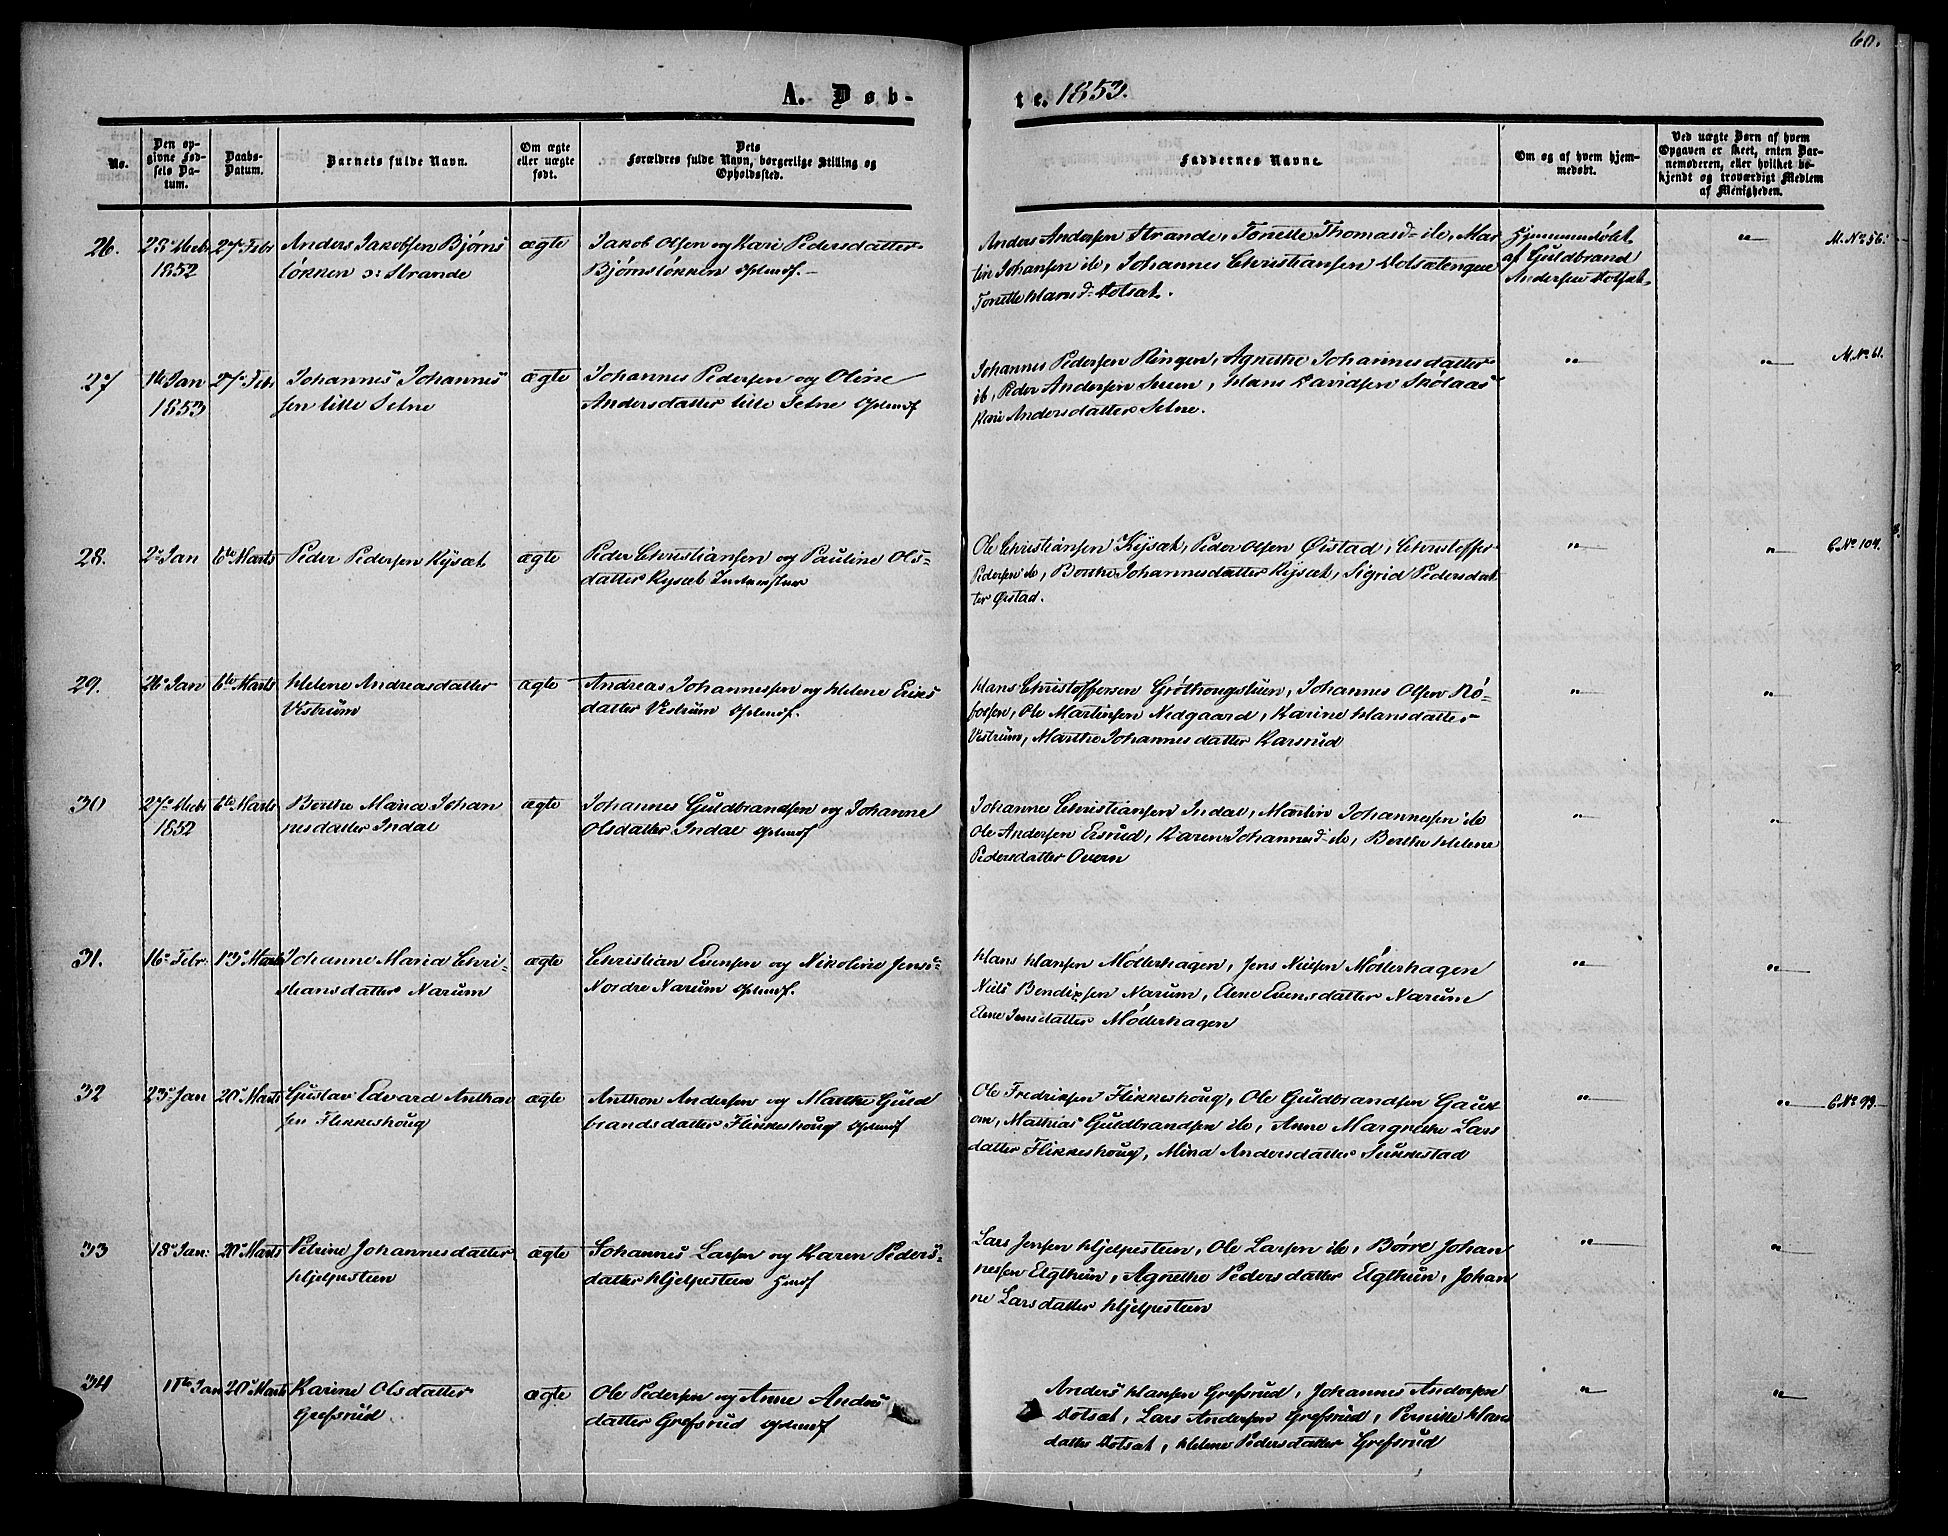 60.
A. Døb-
te. 1853.
No.
Den op-
givne Fød-
sels Da-
tum.
Daabs-
Datum.
Barnets fulde Navn.
Om ægte
eller uægte
født.
Dets
Forældres fulde Navn, borgerlige Stilling og
Opholdssted.
Faddernes Navne.
Om og af hvem hjem-
medøbt.
Ved uægte Børn af hvem
Opgaven er skeet, enten Bar-
nemoderen, eller hvilket be-
kjendt og troværdigt Medlem
af Menigheden.
26.
1852
27 Febr
Anders Jakobsen Bjørns
løkken ɔ: Strande
ægte
Jakob Olsen og Kari Pedersdatter
Bjørnsløkken Oplmdf.
Anders Andersen Strande, Tonette Thomasd- ib, Mar
tin Johansen ib, Johannes Christiansen
Tonette Hansd-
Hjemmedøbt
af Guldbrand
Andersen
"
M. No 56.
27
1ste Jan
1853
27 Feb
Johannes Johannes
sen lille Setne
ægte
Johannes Pedersen og Oline
Andersdatter lille Setne Oplmdf
Johannes Pedersen Ringen, Agnethe Johannesdatter
ib, Peder Andersen Hans Davidsen
Kari Andersdatter Setne.
"
"
M. No 61.
28.
2 Jan
6te Marts
Peder Pedersen Kysæt
ægte
Peder Christiansen og Pauline Ols-
datter Kysæt
Ole Christiansen Kysæt, Peder Olsen Øistad, Christoffer
Pedersen ib, Berthe Johannesdatter Kysæt, Sigrid Pedersdat
ter Øistad.
"
"
C No 104.
29.
26 Jan
6te Marts
Helene Andreasdatter
Vestrum
ægte
Andreas Johannessen og Helene Eriks
datter Vestrum Oplmdf.
Hans Christoffersen Johannes Olsen
Ole Martinsen Nedgaard, Karine Hansdatter
Vestrum, Marthe Johannesdatter Karsrud
"
"
30
1852
6te Marts
Berthe Maria Johan
nesdatter Indal
ægte
Johannes Guldbrandsen og Johanne
Olsdatter Indal Oplmdf
Johannes Christiansen Indal, Martin Johannessen ib
Ole Andersen Ersrud, Karen Johannesd- ib, Berthe Helene
Pedersdatter Overn
"
"
31.
16 Febr.
13 Marts
Johanne Maria Chri-
stiansdatter Narum
ægte
Christian Evensen og Nikoline Jens-
Nordre Narum Oplmdf.
Hans Hansen Møllerhagen, Jens Nielsen Møllerhagen
Niels Bendixsen Narum, Elene Evensdatter Narum
Elene Jensdatter Møllerhagen
"
"
32
23 Jan
20 Marts
Gustav Edvard Anthon
sen Flikkeshoug
ægte
Anthon Andersen og Marthe Guld
brandsdatter Flikkeshoug Oplmdf
Ole Fredriksen Flikkeshoug, Ole Guldbrandsen
Mathias Guldbrandsen ib, Anne Margrethe Lars
datter Flikkeshoug, Mina Andersdatter Sukkestad
"
"
C No 93
33
18 Jan.
20 Marts
Petrine Johannesdatter
Hjelpesteen
ægte
Johannes Larsen og Karen Peders-
datter Hjelpesteen
Lars Jensen Hjelpesteen, Ole Larsen ib, Børre Johan
nessen Elgthun, Agnethe Pedersdatter Elgthun, Johan
ne Larsdatter Hjelpesteen
"
"
34
Jan
20 Marts
Karine Olsdatter
Grefsrud
ægte
Ole Pedersen og Anne Anders
datter Grefsrud Oplmdf
Anders Hansen Grefsrud, Johannes Andersen
Lars Andersen Grefsrud, Pernille Hans
datter Helene Pedersdatter Grefsrud
"
"